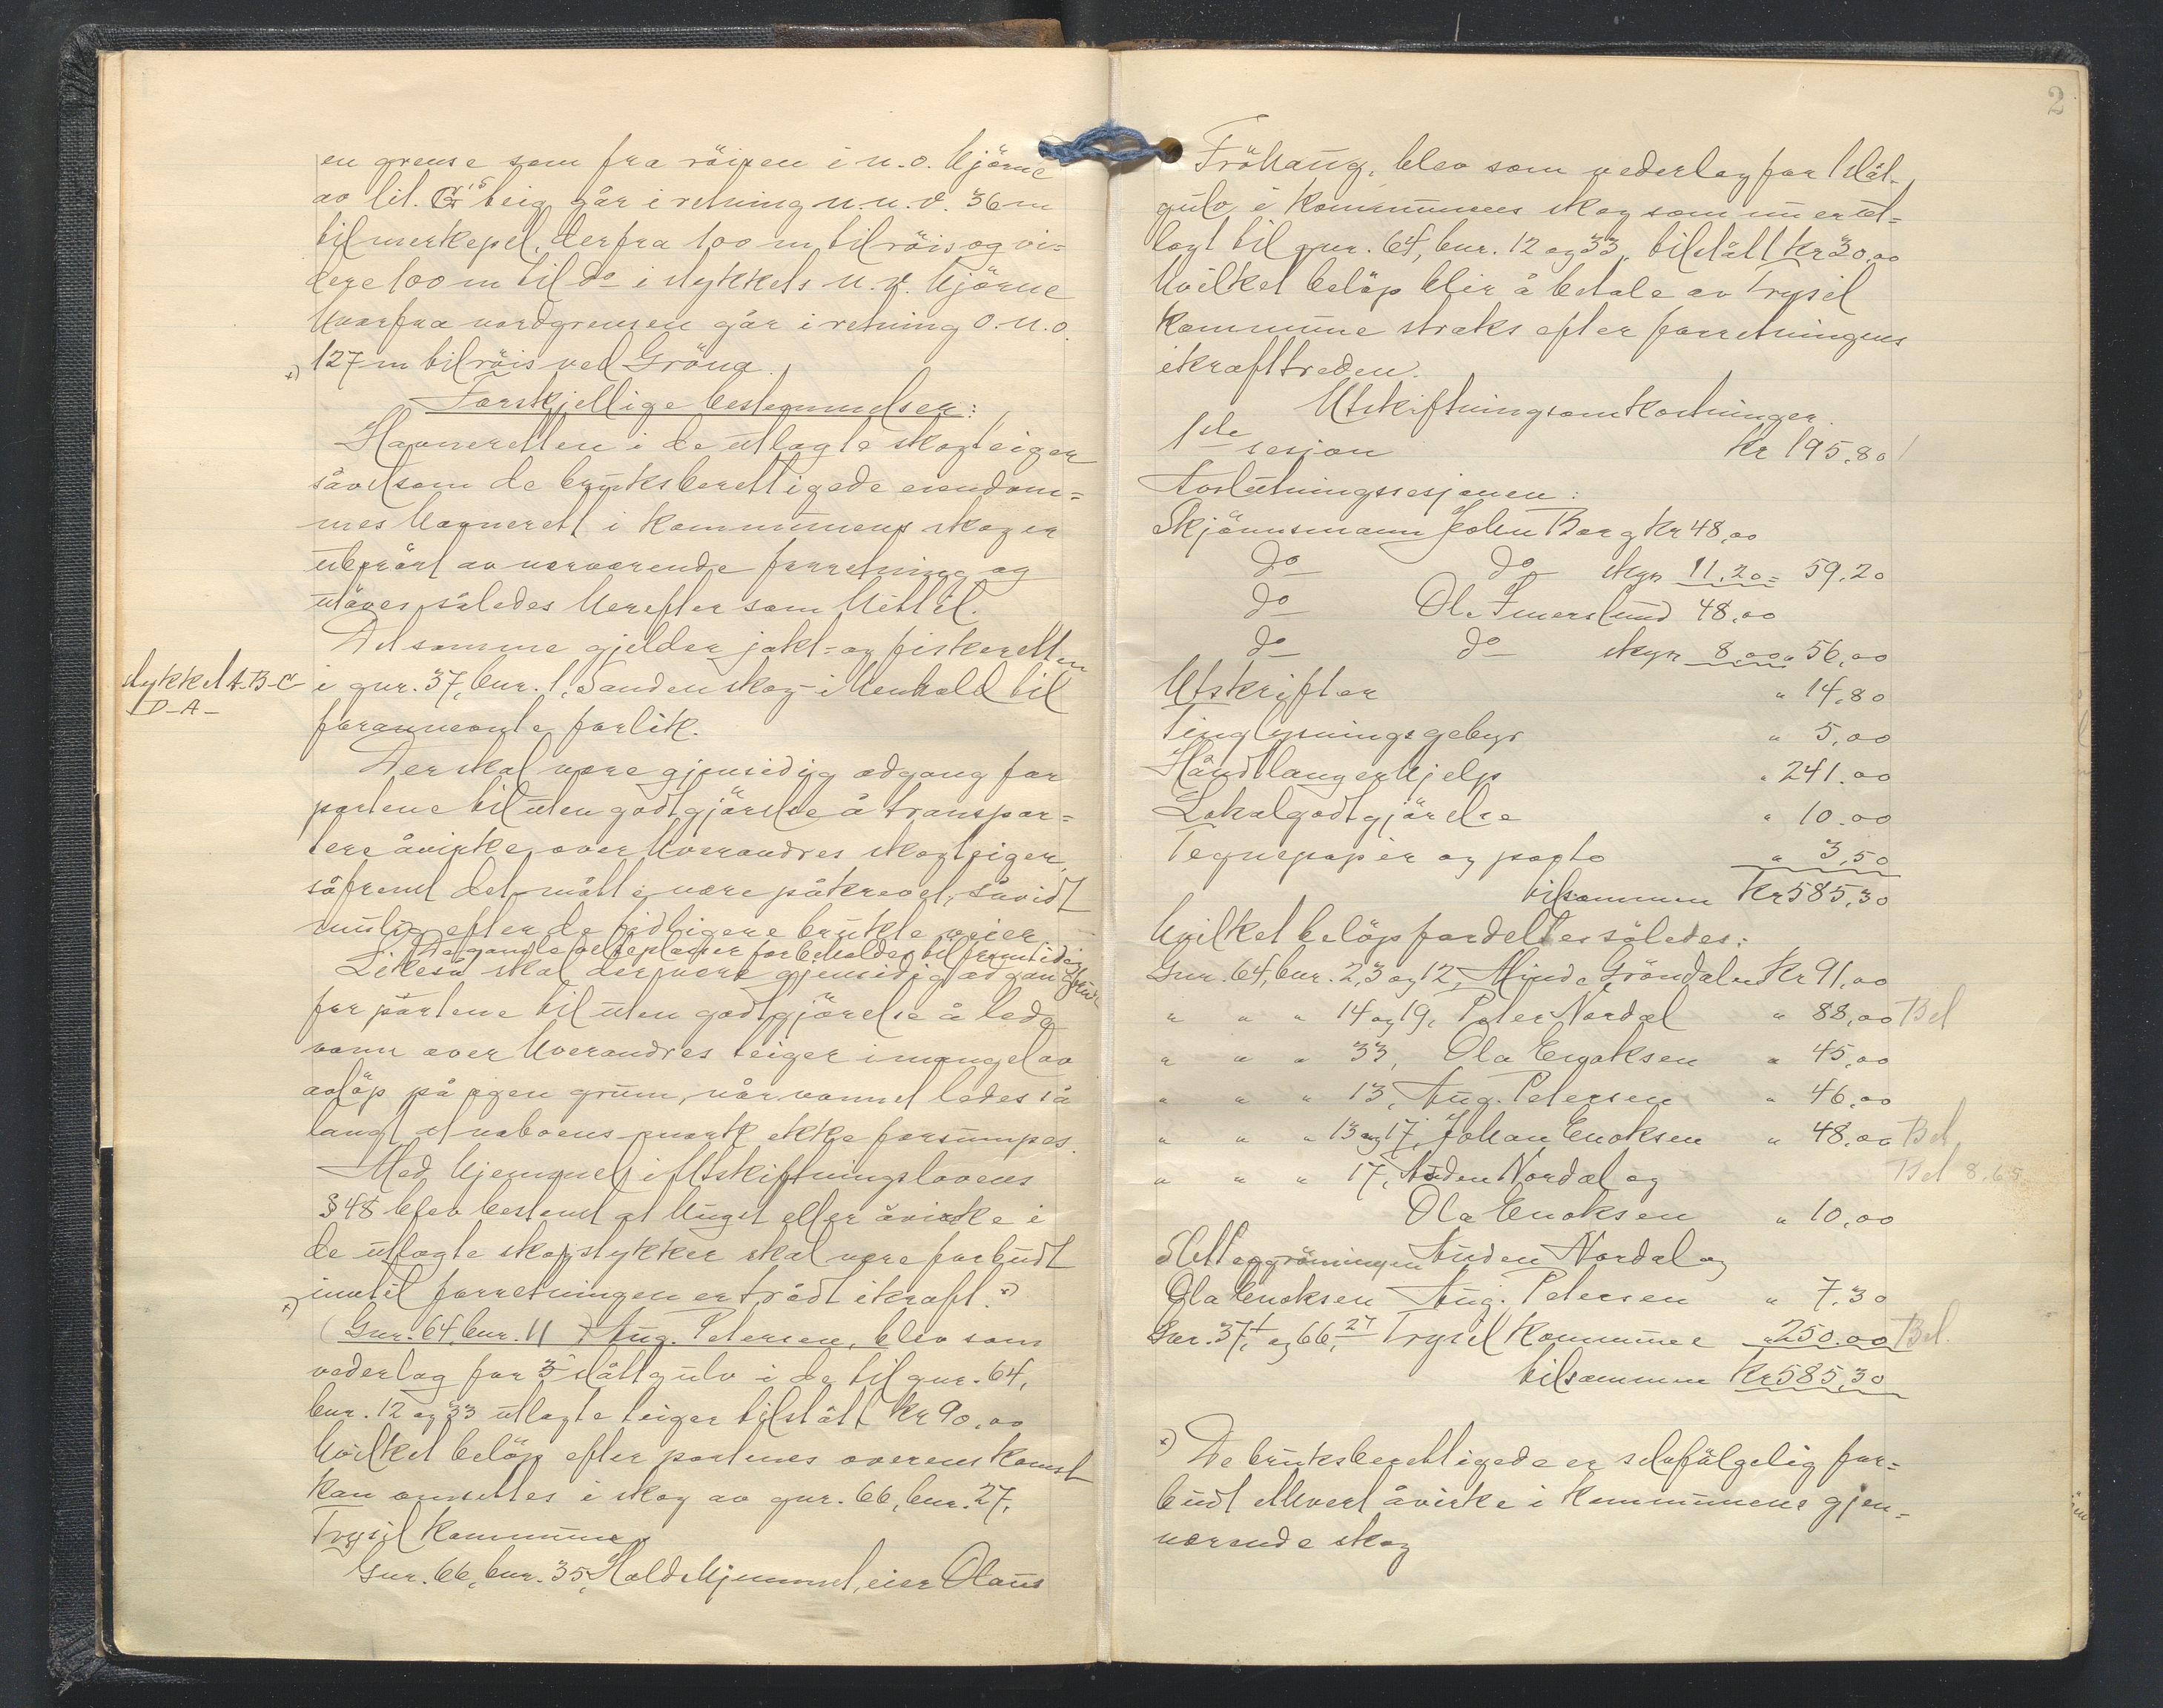 en grense som fra röisen i n.o. hjörne
av lit. G's teig går i retning n.n.v. 36 m
til merkepel, derfra 100 m til röis og vi=
dere 100 m til do i stykkets n.v. hjörne
hvorfra nordgrensen går i retning o.n.o.
x) 127 m til röis ved Gröna.
Forskjellige bestemmelser:
Havneretten i de utlagte skogteiger
såvelsom de bruksberettigede eiendom=
mes havnerett i kommunens skog er
uberört av nærværende forretning og
utöves således herefter som hittil.
Det samme gjelder jakt- og fiskeretten
stykket A-B-C
-D-A-
i gnr. 37, bnr. 1, Sanden skog i henhold til
forannevnte forlik.
Der skal være gjensidig adgang for
partene til uten godtgjörelse å transpor=
tere åvirke over hverandres skogteiger,
såfremt det måtte være påkrevet, såvidt
mulig efter de tidligere brukte veier.
De gamle velteplasser forbeholdes til fremtidig bruk
Likeså skal der være gjensidig adgang
for partene til uten godtgjörelse å lede
vann over hverandres teiger i mangel av
avlöp på egen grunn, når vannet ledes så
langt at naboens mark ikke forsumpes.
Med hjemmel i Utskiftningslovens
§ 48 blev bestemt at huget eller åvirke i
de utlagte skogstykker skal være forbudt
inntil forretningen er trådt ikraft. x)
x) (Gnr. 64, bnr. 11) Aug. Petersen, blev som
vederlag for 3 slåttgulv i de til gnr. 64,
bnr. 12 og 33 utlagte teiger tilstått kr 90,00
hvilket belöp efter partenes overenskomst
kan ansettes i skog av gnr. 66, bnr. 27,
Trysil kommune.
Gnr. 66, bnr. 35, Holdhjemmet, eier Olaus
2
Fröhaug, blev som vederlag for 1 slått-
gulv i kommunens skog som nu er ut=
lagt til gnr. 64, bnr. 12 og 33, tilstått kr 30,00
hvilket belöp blir å betale av Trysil
kommune straks efter forretningens
ikrafttreden.
Utskiftningsomkostninger.
1ste sesjon kr 195,80
Avslutningssesjonen:
Skjönnsmann John Borg kr 48,00
do do skyss 11,20 = 59,20
do Ole Imerslund 48,00
do do skyss 8,00 " 56,00
Utskrifter " 14,80
Tinglysningsgebyr " 5,00
Håndtlangerhjelp " 241,00
Lokalgodtgjörelse " 10,00
Tegnepapir og porto " 3,50
tilsammen kr 585,30
hvilket belöp fordeltes således:
Gnr. 64, bnr. 2, 3 og 12, Minda Gröndalen kr 91,00
" " " 14 og 19, Peter Nordal " 88,00 Bet
" " " 33, Ola Enoksen " 45,00
" " " 13, Aug. Petersen " 46,00
" " " 13 og 17, Johan Enoksen " 48,00 Bet.
" " " 17, Auden Nordal og Bet 8,65
Ola Enoksen " 10,00
Auden Nordal og
Ola Enoksen Aug. Petersen " 7,30
Gnr. 37,1 og 66,27 Trysil kommune " 250,00 Bet.
tilsammen kr 585,30
x) De bruksberettigede er selvfölgelig for=
budt ethvert åvirke i kommunens gjen=
værende skog